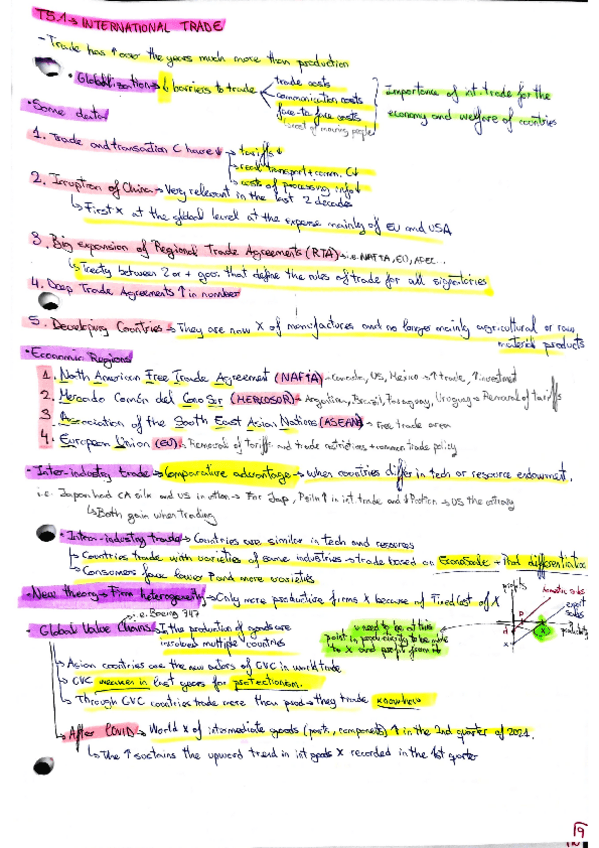 T5.1→ INTERNATIONAL TRADE
- Trade has ↑ over the years much more than production
• Globalization → ↓ barriers to trade
trade costs
communication costs
face-to face costs
↳ cost of moving people
Importance of int. trade for the
economy and welfare of countries
• Some data
1. Trade and transaction C have ↓ → tariffs ↓
→ real transport + comm. C↓
→ costs of processing info↓
2. Irruption of China → Very relevant in the last 2 decades
↳ First X at the global level at the expense mainly of EU and USA
3. Big expansion of Regional Trade Agreements (RTA) → i.e. NAFTA, EU, APEC..
↳ Treaty between 2 or + gov. that define the rules of trade for all signatories
4. Deep Trade Agreements ↑ in number
5. Developing Countries → They are now X of manufactures and no longer mainly agricultural or raw
material products
• Economic Regions
1. North American Free Trade Agreement (NAFTA) → Canada, US, Mexico → ↑ trade, ↑ investment
2. Mercado Común del Cono Sur (MERCOSOR) → Argentina, Brazil, Paraguay, Uruguay → Removal of tariffs
3 Association of the South East Asian Nations (ASEAN) → Free trade area
4. European Union (EU) → Removals of tariffs and trade restrictions + common trade policy
• Inter-industry trade → Comparative advantage → when countries differ in tech or resource endowment.
i.e. Japan had CA silk and US in cotton → For Jap, Psilk ↑ in int trade and ↓ Pcotton → US the contrary
↳ Both gain when trading
• Intra-industry trade → Countries are similar in tech and resources
↳ Countries trade with varieties of same industries → trade based on EconoScale + Prod differentiation
↳ Consumers face lower P and more varieties
- New theory → Firm heterogeneity → Only more productive firms X because of Fixed Cost of X
i.e. Boeing 747
- Global Value Chains: In the production of goods are
involved multiple countries
need to be at this
point in productivity to be able
to X and profit from it
profits
domestic sales
export
sales
Productivity
X
↳ Asian countries are the new actors of GVC in world trade
↳ GVC weaken in last years for protectionism.
↳ Through GVC countries trade more than prod → they trade know how
↳ After COVID → World X of intermediate goods (parts, components) ↑ in the 2nd quarter of 2021.
↳ The ↑ sustains the upward trend in int goods X recorded in the 1st quarter
19